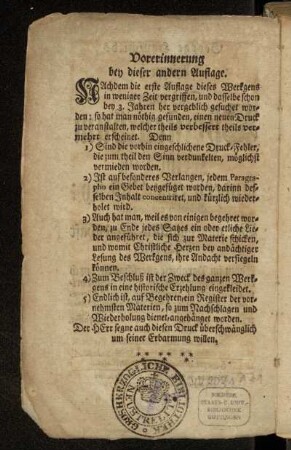 Vorerinnerung
bey dieser andern Auflage.
NAchdem die erste Auflage dieses Werkgens
in weniger Zeit vergriffen, und dasselbe schon
bey 3. Jahren her vergeblich gesuchet wor-
den: so hat man nöthig gefunden, einen neuen Druck
zu veranstalten, welcher theils verbessert theils ver-
mehrt erscheinet. Denn
1) Sind die vorhin eingeschlichene Druck-Fehler,
die zum theil den Sinn verdunkelten, möglichst
vermieden worden.
2) Ist auf besonderes Verlangen, jedem Paragra-
pho ein Gebet beygefüget worden, darinn des-
selben Inhalt concentriret, und kürzlich wieder-
holet wird.
3) Auch hat man, weil es von einigen begehret wor-
den, zu Ende jedes Satzes ein oder etliche Lie-
der angeführet, die sich zur Materie schicken,
und womit Christliche Herzen bey andächtiger
Lesung des Werkgens, ihre Andacht versiegeln
können.
4) Zum Beschluß ist der Zweck des ganzen Werk-
gens in eine historische Erzehlung eingekleidet.
5) Endlich ist, auf Begehren, ein Register der vor-
nehmsten Materien, so zum Nachschlagen und
Wiederholung dienet, angehänget worden.
Der HErr segne auch diesen Druck überschwänglich
um seiner Erbarmung willen.
GROSHERZOGLICHE BIBLIOTHEK
NEUSTRELITZ